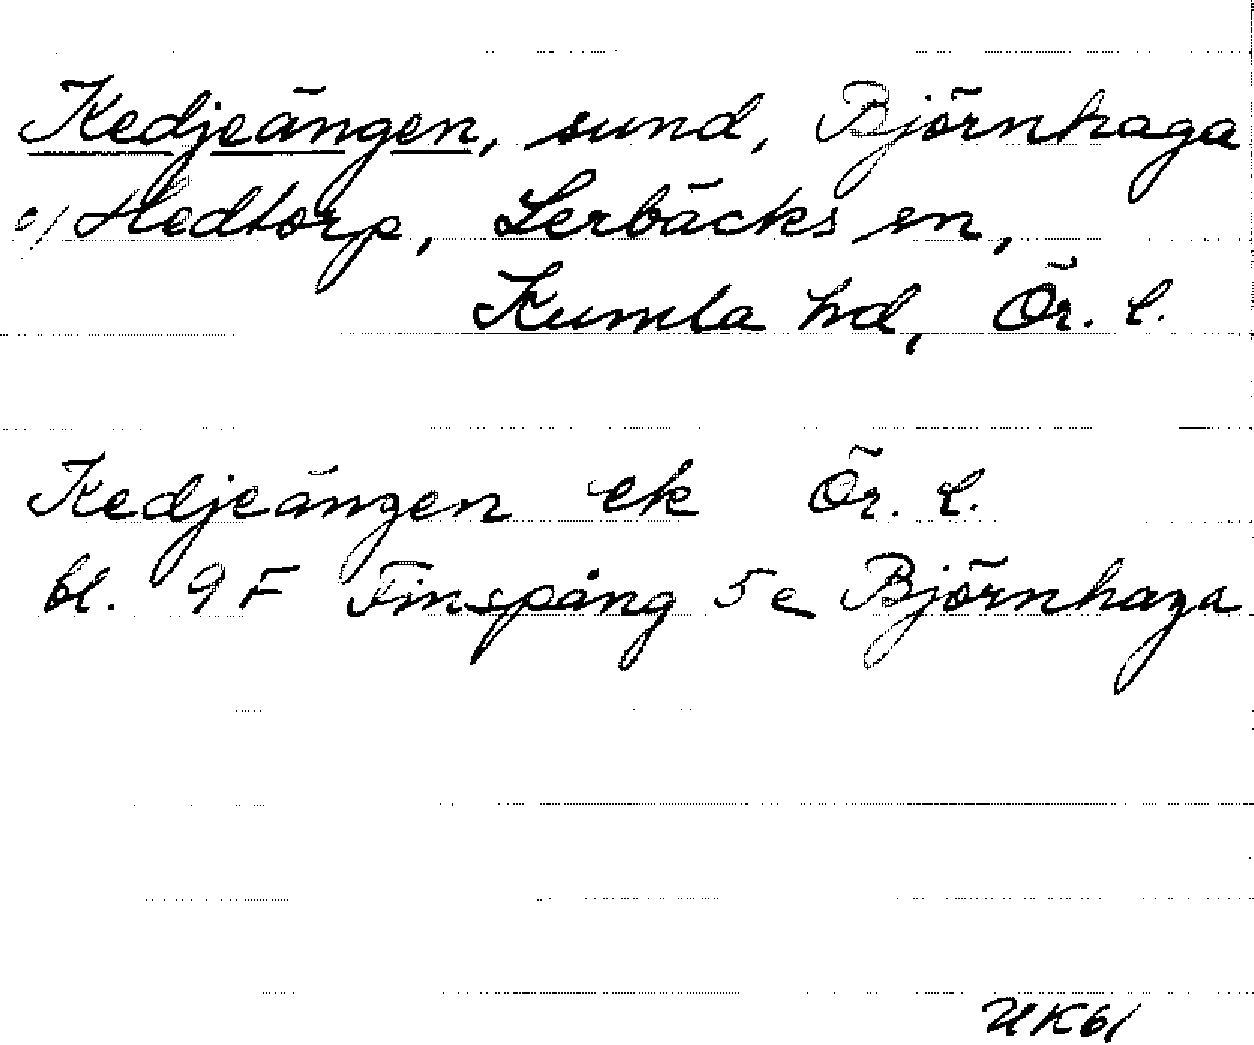 Kedjeängen, sund, Björnhaga
o/ Hedtorp, Lerbäcks sn,
Kumla hd, Ör. l.
Kedjeängen ek Ör. l.
bl. 9F Finspång 5e Björnhaga
UK61